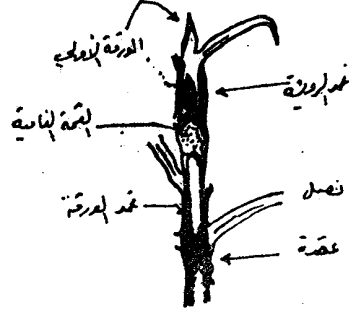 الورقة الأولى
غمد الرويشة
القمة النامية
نصل
غمد الورقة
عقدة